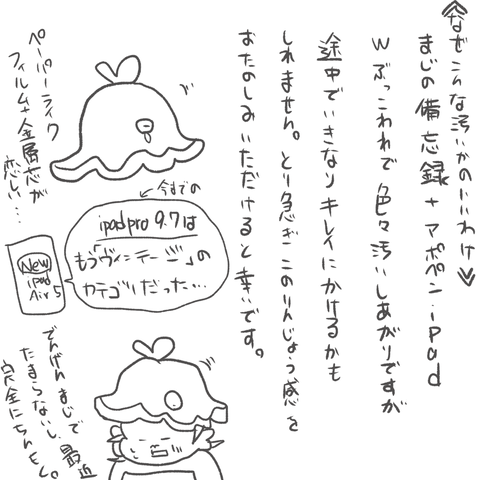 《なぜこんな汚いかのいいわけ》
まじの備忘録+アポペン・iPad
Wぶっこわれで色々汚いしあがりですが
途中でいきなりキレイにかけるかも
しれません。とり急ぎこのりんじょう感を
おたのしみいただけると幸いです。
ペーパーライク
フィルム+金属芯が
恋しい…
今までの
ipad pro 9.7は
もう「ヴィンテージ」の
カテゴリだった…
New
ipad
Air5
でんげんまじで
たまらないし、最近
完全にちんもく。